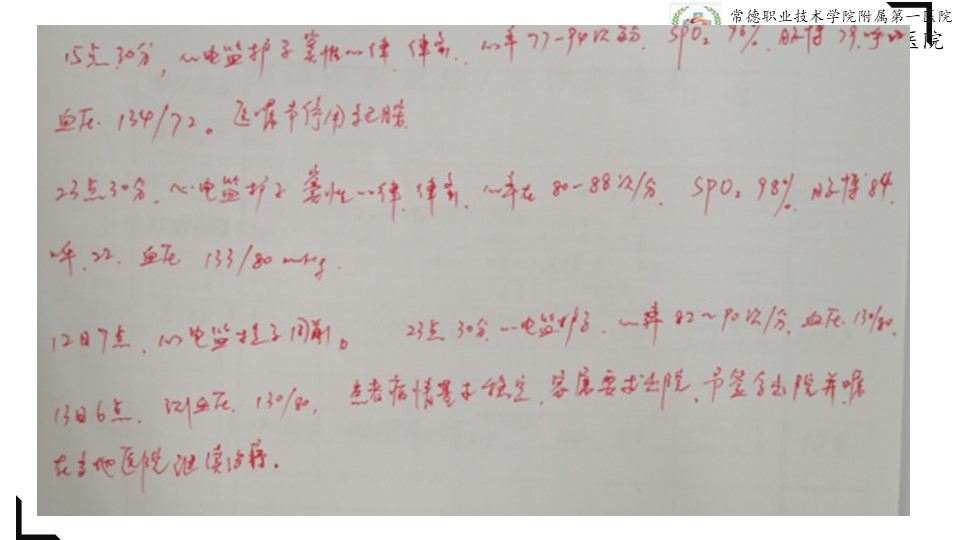 常德职业技术学院附属第一医院
医院
15点30分,心电监护示窦性心律,律齐,心率77-94次/分,SPO₂ 96%,脉搏79,呼22
血压134/72。医嘱予停用
23点30分,心电监护示窦性心律,律齐,心率在80-88次/分,SPO₂ 98%,脉搏84,
呼22,血压133/80 mmHg.
12日7点,心电监护示同前。 23点30分,心电监护示,心率82~90次/分,血压130/80,
13日6点,测血压130/80,患者病情基本稳定,家属要求出院,予签字出院并嘱
在当地医院继续治疗。